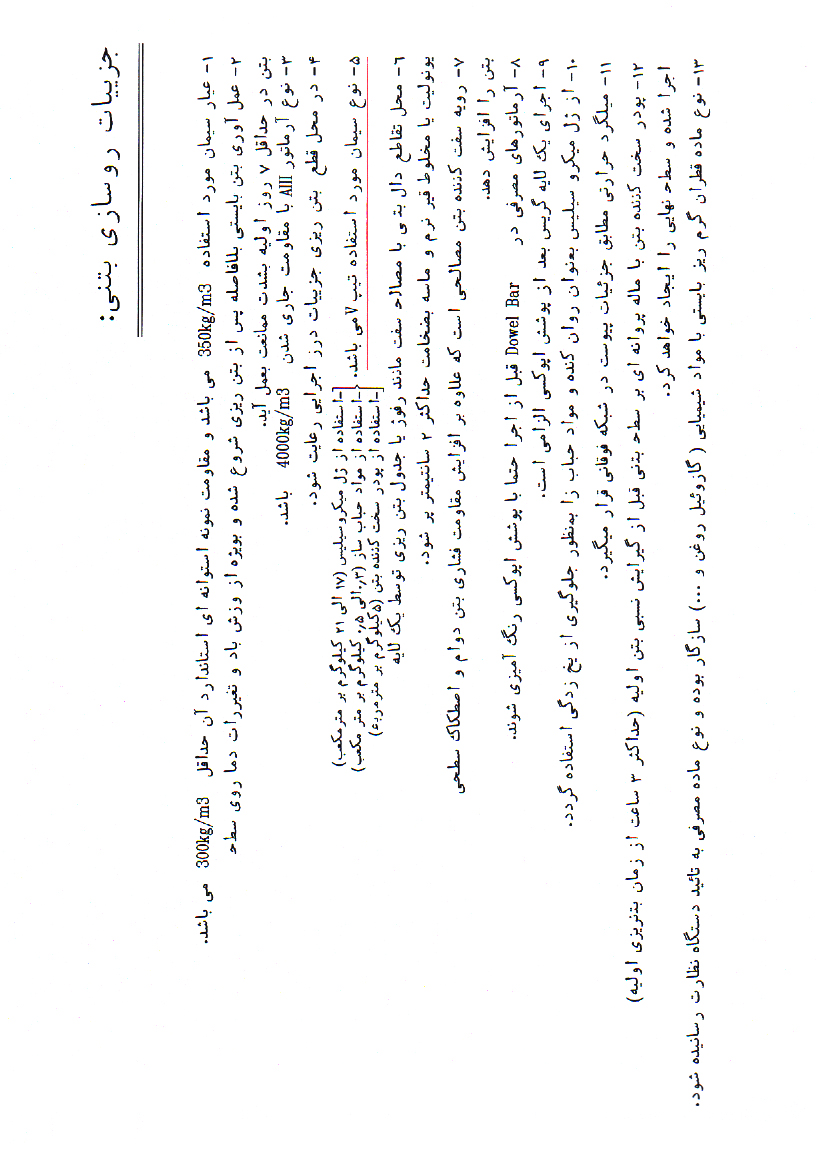 جزییات روسازی بتنی:
۱- عیار سیمان مورد استفاده 350kg/m3 می باشد و مقاومت نمونه استوانه ای استاندارد آن حداقل 300kg/m3 می باشد.
۲- عمل آوری بتن بایستی بلافاصله پس از بتن ریزی شروع شده و بویژه از وزش باد و تغییررات دما روی سطح
بتن در حداقل ۷ روز اولیه بشدت ممانعت بعمل آید.
۳- نوع آرماتور AIII با مقاومت جاری شدن 4000kg/m3 باشد.
۴- در محل قطع بتن ریزی جزییات درز اجرایی رعایت شود.
۵- نوع سیمان مورد استفاده تیپ V می باشد.
-استفاده از ژل میکروسیلیس (۱۷ الی ۲۱ کیلوگرم بر مترمکعب)
-استفاده از مواد حباب ساز (۰٫۳ الی ۰٫۵ کیلوگرم بر متر مکعب)
-استفاده از پودر سخت کننده بتن (۵ کیلوگرم بر مترمربع)
۶- محل تقاطع دال بتنی با مصالح سفت مانند رفوژ یا جدول بتن ریزی توسط یک لایه
یونولیت یا مخلوط قیر نرم و ماسه بضخامت حداکثر ۲ سانتیمتر پر شود.
۷- رویه سفت کننده بتن مصالحی است که علاوه بر افزایش مقاومت فشاری بتن دوام و اصطکاک سطحی
بتن را افزایش دهد.
۸- آرماتورهای مصرفی در Dowel Bar قبل از اجرا حتما با پوشش اپوکسی رنگ آمیزی شوند.
۹- اجرای یک لایه گریس بعد از پوشش اپوکسی الزامی است.
۱۰- از ژل میکرو سیلیس بعنوان روان کننده و مواد حباب زا بمنظور جلوگیری از یخ زدگی استفاده گردد.
۱۱- میلگرد حرارتی مطابق جزئیات پیوست در شبکه فوقانی قرار میگیرد.
۱۲- پودر سخت کننده بتن با ماله پروانه ای بر سطح بتنی قبل از گیرایش نسبی بتن اولیه (حداکثر ۳ ساعت از زمان بتنریزی اولیه)
اجرا شده و سطح نهایی را ایجاد خواهد کرد.
۱۳- نوع ماده قطران گرم ریز بایستی با مواد شیمیایی ( گازوئیل روغن و ...) سازگار بوده و نوع ماده مصرفی به تائید دستگاه نظارت رسانیده شود.